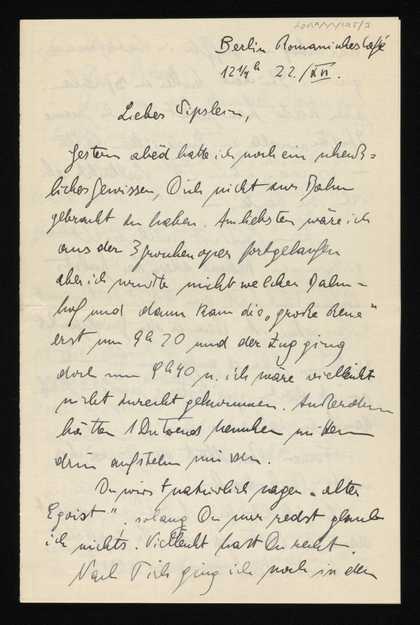 Berlin Romanisches Café
12 ¼ h 22./XII.
Liebes Sipslein,
Gestern abend hatte ich noch ein
liches Gewissen, Dich nicht zur Bahn
gebracht zu haben. Am liebsten wäre ich
aus der 3groschenoper fortgelaufen
aber ich wusste nicht welcher Bahn-
hof und dann kam die „große Rene"
erst um 9h 20 und der Zug ging
doch um 9h40 u. ich wäre vielleicht
nicht zurecht gekommen. Außerdem
hätten 1 Dutzend Menschen mitten
drin aufstehn müssen.
Du wirst natürlich sagen „alter
Egoist", solang Du nur redst glaub
ich nichts. Vielleicht hast Du recht.
Nach Tisch ging ich noch in den